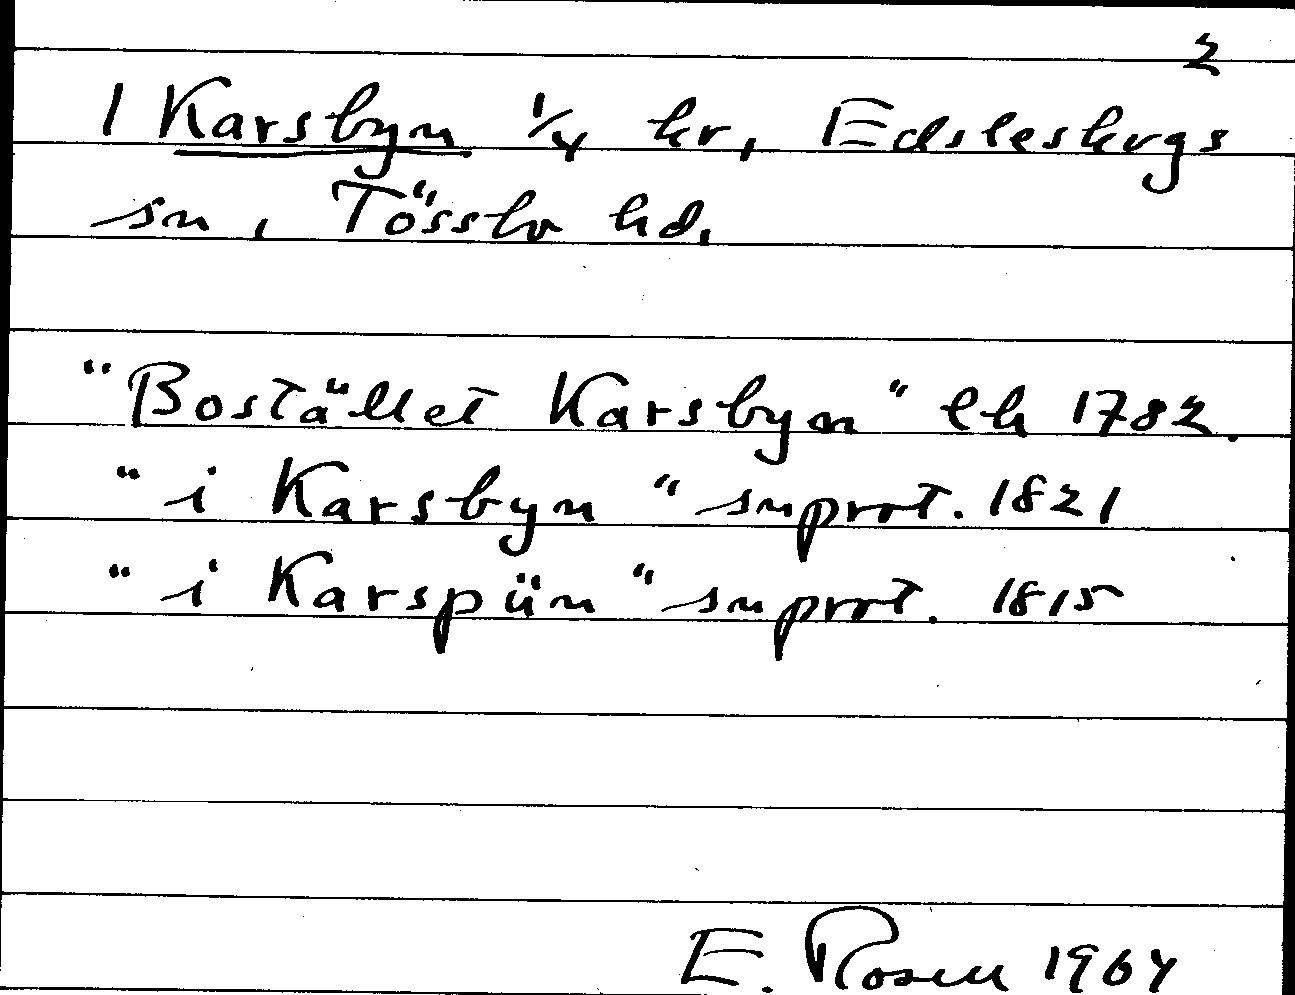 2
1 Karsbyn 1/4 kr, Edsleskogs
sn, Tössbo hd.
"Bostället Karsbyn" lh 1782.
"i Karsbyn" snprot. 1821
"i Karspün" snprot. 1815
E. Rosen 1964